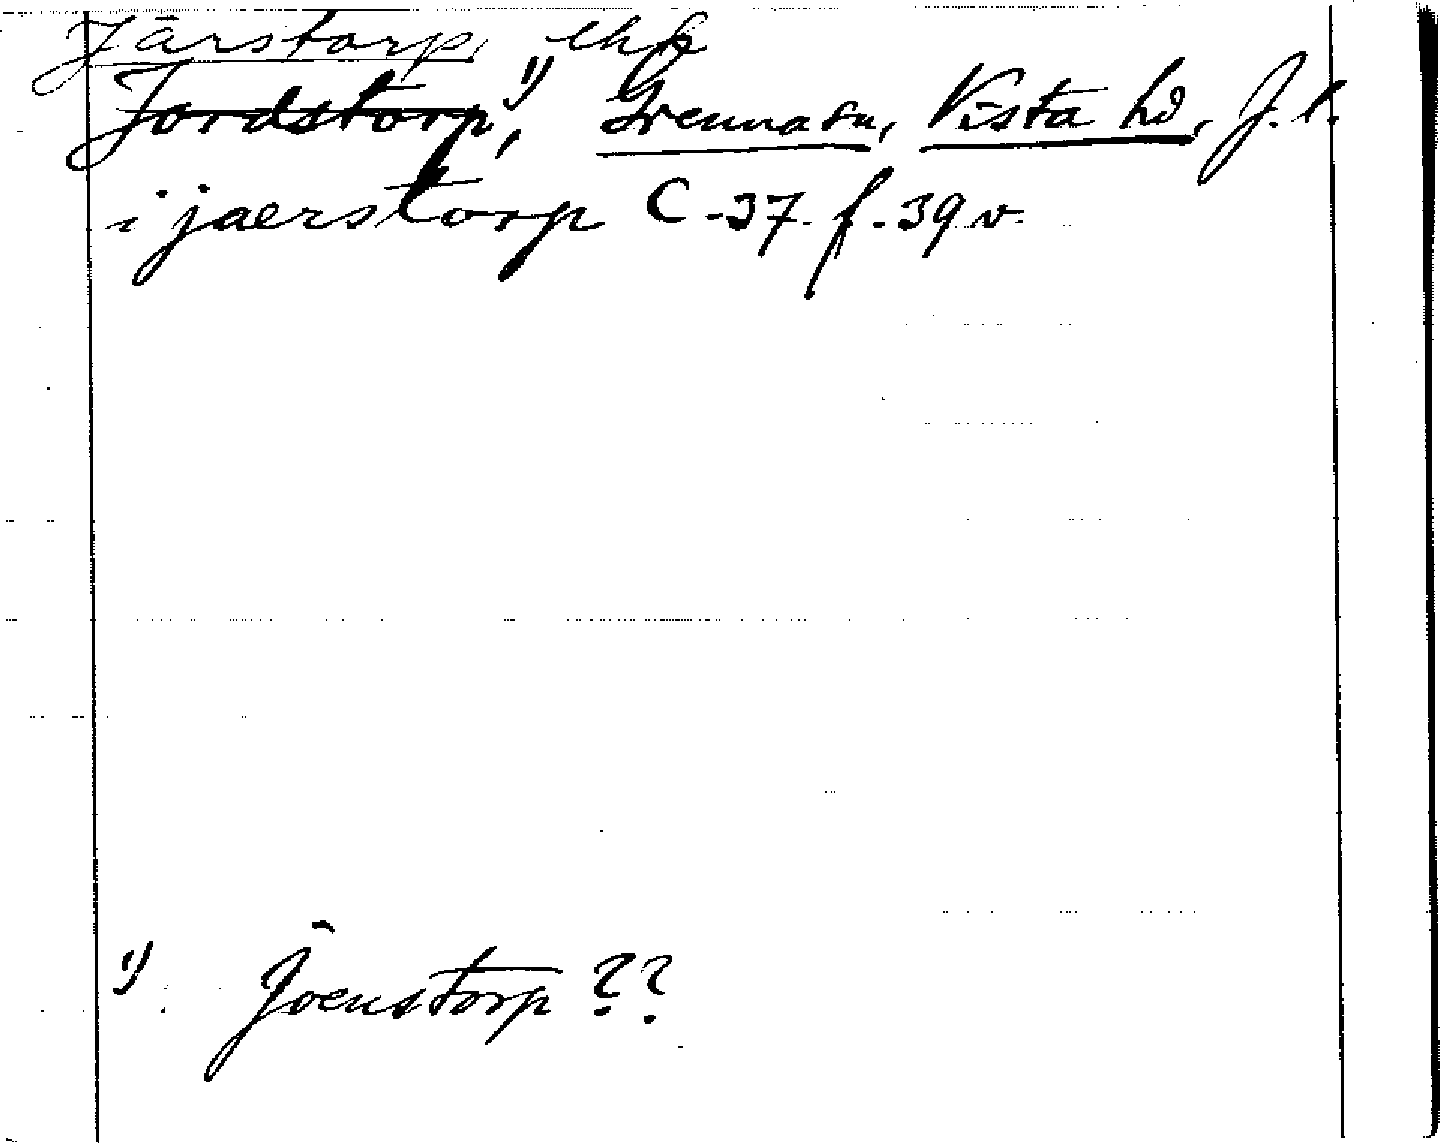 Järstorp, ehf
Jordstorp,¹⁾ Grenna sn, Vista hd, J. l.
i jaerstorp C-37. f. 39 v.
¹⁾. Joenstorp ??